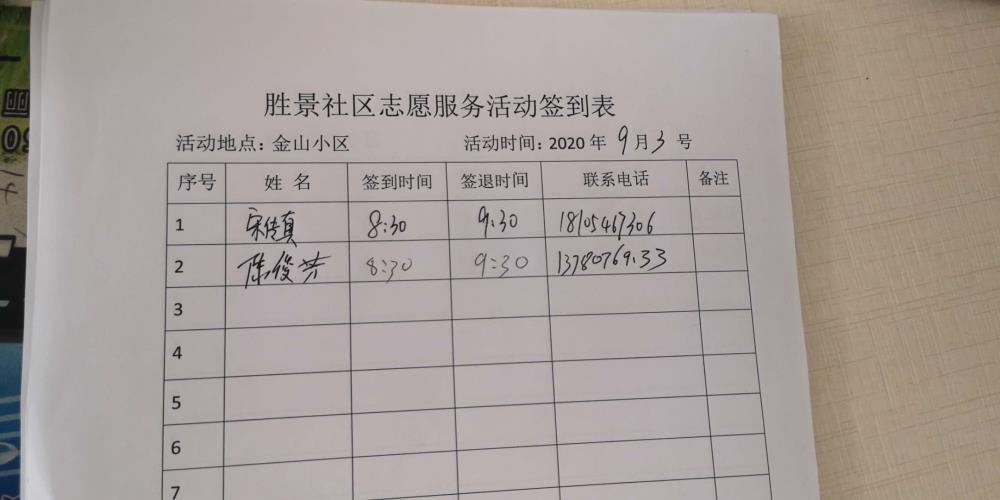 胜景社区志愿服务活动签到表
活动地点：金山小区 活动时间：2020 年 9月3 号
序号 姓 名 签到时间 签退时间 联系电话 备注
1 宋传真 8:30 9:30 18105467306
2 陈俊芳 8:30 9:30
3
4
5
6
7